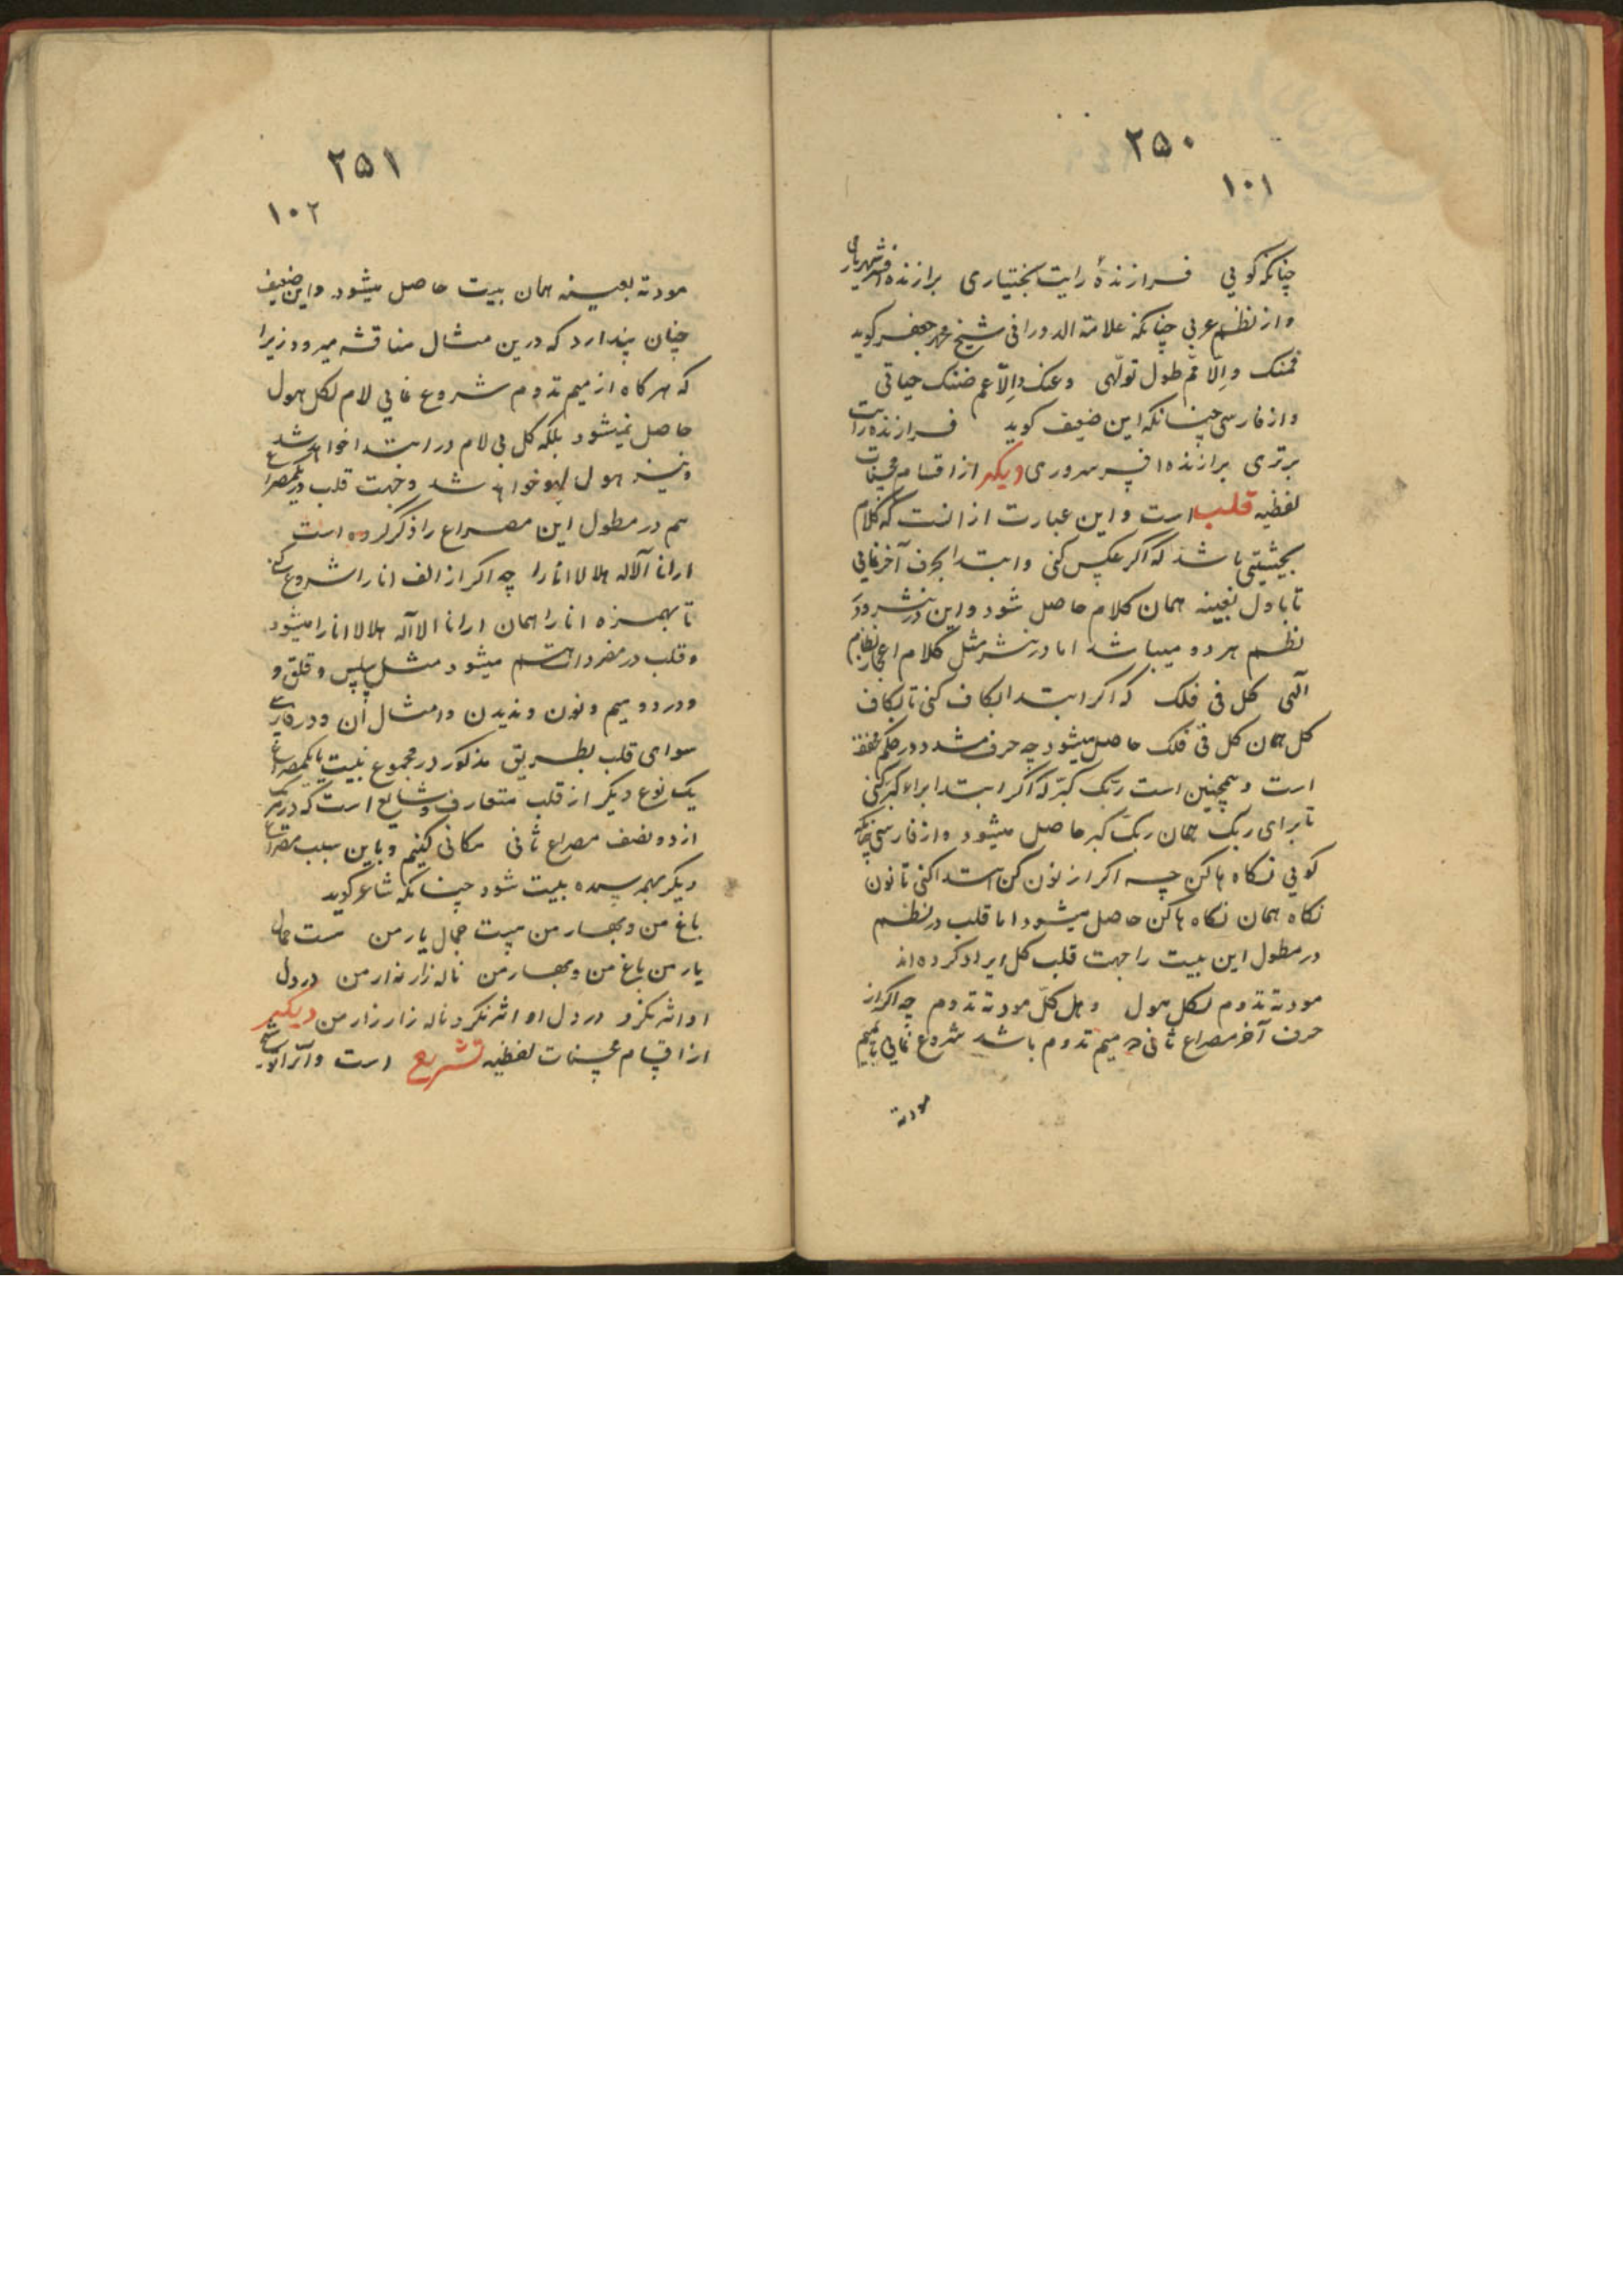 ۲۵۰
۱۰۱
چنانکه کویی فرازندهٔ رایت بختیاری برازنده افسر شهریاری
واز نظم عربی چنانکه علامة الدورانی شیخ محمد جعفر کوید
فمنک والّا فمّ طول تولّهی وعنک والّا عم ضنک حیاتی
واز فارسی چنانکه این ضعیف کوید فرازنده رایت
برتری برازنده افسر سروری دیکر از اقسام محسنات
لفظیه قلب است واین عبارت از انست که کلام
بحیثیتی باشد که اگر عکس کنی وابتدا بحرف آخر نمایی
تا باول بعینه همان کلام حاصل شود واین در نثر ودر
نظم هر دو میباشد اما در نثر مثل کلام اعجاز نظام
الهی کل فی فلک که اکر ابتدا بکاف کنی تا بکاف
کل همان کل فی فلک حاصل میشود چه حرف مشدد در حکم مخفف
است وهمچنین است ربّک کبّر که اکر ابتدا براء کبّر کنی
تا برای ربک همان ربّک کبر حاصل میشود واز فارسی چنانکه
کویی نکاه هاکن چه اکر از نون کن ابتدا کنی تا نون
نکاه همان نکاه هاکن حاصل میشود اما قلب در نظم
در مطول این بیت را جهت قلب کل ایراد کرده اند
مودته تدوم لکل هول وهل کلّ مودته تدوم چه اکر از
حرف آخر مصراع ثانی که میم تدوم باشد شروع نمایی تا بمیم
مودته
۲۵۱
۱۰۲
مودته بعینه همان بیت حاصل میشود واین ضعیف
چنان پندارد که درین مثال مناقشه میرود زیرا
که هرکاه از میم تدوم شروع نمایی لام لکل هول
حاصل نمیشود بلکه کل بی لام در ابتدا خواهد شد
ونیز هول لهو خواهد شد وجهت قلب در یکمصراع
هم در مطول این مصراع را ذکر کرده است
ارانا آلاله هلالا انارا چه اکر از الف انارا شروع کنی
تا بهمزه انارا همان ارانا الاله هلالا انارا میشود
وقلب در مفردات هم میشود مثل سلس وقلق و
ودر دو میم ونون وندیدن وامثال آن ودر فارسی
سوای قلب بطریق مذکور در مجموع بیت یا یکمصراع
یک نوع دیکر از قلب متعارف وشایع است که در هر یک
از دو نصف مصراع ثانی مکانی کنیم وباین سبب مصراع
دیکر بهم رسیده بیت شود چنانکه شاعر کوید
باغ من وبهار من هست جمال یار من هست جمال
یار من باغ من وبهار من ناله زار زار من در دل
او اثر نکرد در دل او اثر نکرد ناله زار زار من دیکر
از اقسام محسنات لفظیه تشریع است وآنرا توشیح